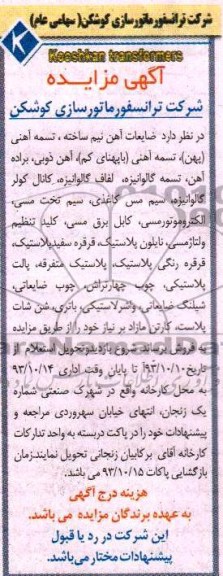 شرکت ترانسفورماتورسازی کوشکن( سهامی عام)
Kooshkan transformers
آگهی مزایـــده
شرکت ترانسفورماتورسازی کوشکن
در نظر دارد ضایعات آهن نیم ساخته ، تسمه آهنی
(پهن)، تسمه آهنی (باپهنای کم)، آهن ذوبی، براده
آهن، تسمه گالوانیزه، لفاف گالوانیزه، کانال کولر
گالوانیزه، سیم مس کاغذی، سیم تخت مسی،
الکتروموتورمسی، کابل برق مسی، کلید تنظیم
ولتاژمسی، نایلون پلاستیک، قرقره سفیدپلاستیک،
قرقره رنگی پلاستیک، پلاستیک متفرقه، پالت
پلاستیکی، چوب چهارتراش، چوب ضایعاتی،
شیلنگ ضایعاتی، واشرلاستیکی، باتری، شن شات
پلاست، کارتن مازاد بر نیاز خود را از طریق مزایده
به فروش برساند. شروع بازدیدوتحویل استعلام از
تاریخ ۹۳/۱۰/۱۰ تا پایان وقت اداری ۹۳/۱۰/۱۴
به محل کارخانه واقع در شهرک صنعتی شماره
یک زنجان، انتهای خیابان سهروردی مراجعه و
پیشنهادات خود را در پاکت دربسته به واحد تدارکات
کارخانه آقای برکاییان زنجانی تحویل نمایند.زمان
بازگشایی پاکات ۹۳/۱۰/۱۵ می باشد.
هزینه درج آگهی
به عهده برندگان مزایده می باشد.
این شرکت در رد یا قبول
پیشنهادات مختار می‌باشد.